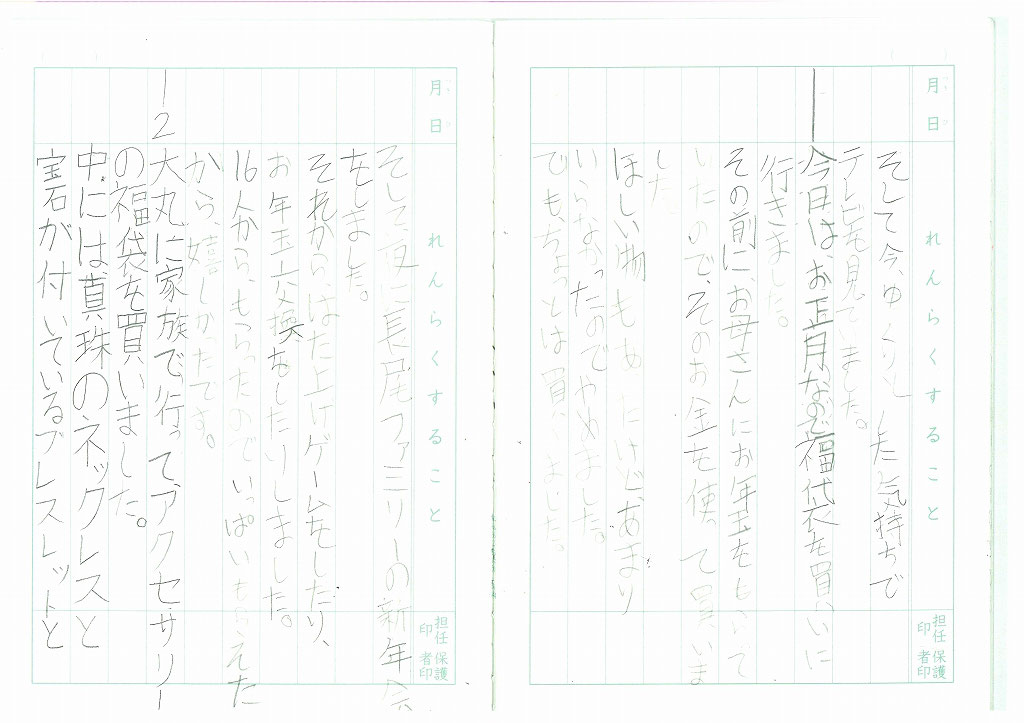 月 日
れんらくすること
担任印 保護者印
そして今、ゆっくりした気持ちで
テレビを見ていました。
一 今日は、お正月なので福袋を買いに
行きました。
その前にお母さんにお年玉をもらって
いたので、そのお金を使って買いま
した。
ほしい物もあったけど、あまり
いらなかったのでやめました。
でも、ちょっとは買いました。
月 日
れんらくすること
担任印 保護者印
そして、夜に長尾ファミリーの新年会
をしました。
それから、はた上げゲームをしたり、
お年玉交換をしたりしました。
16人から、もらったのでいっぱいもらえた
から、嬉しかったです。
一2 大丸に家族で行って、アクセサリー
の福袋を買いました。
中には真珠のネックレスと
宝石が付いているブレスレットと